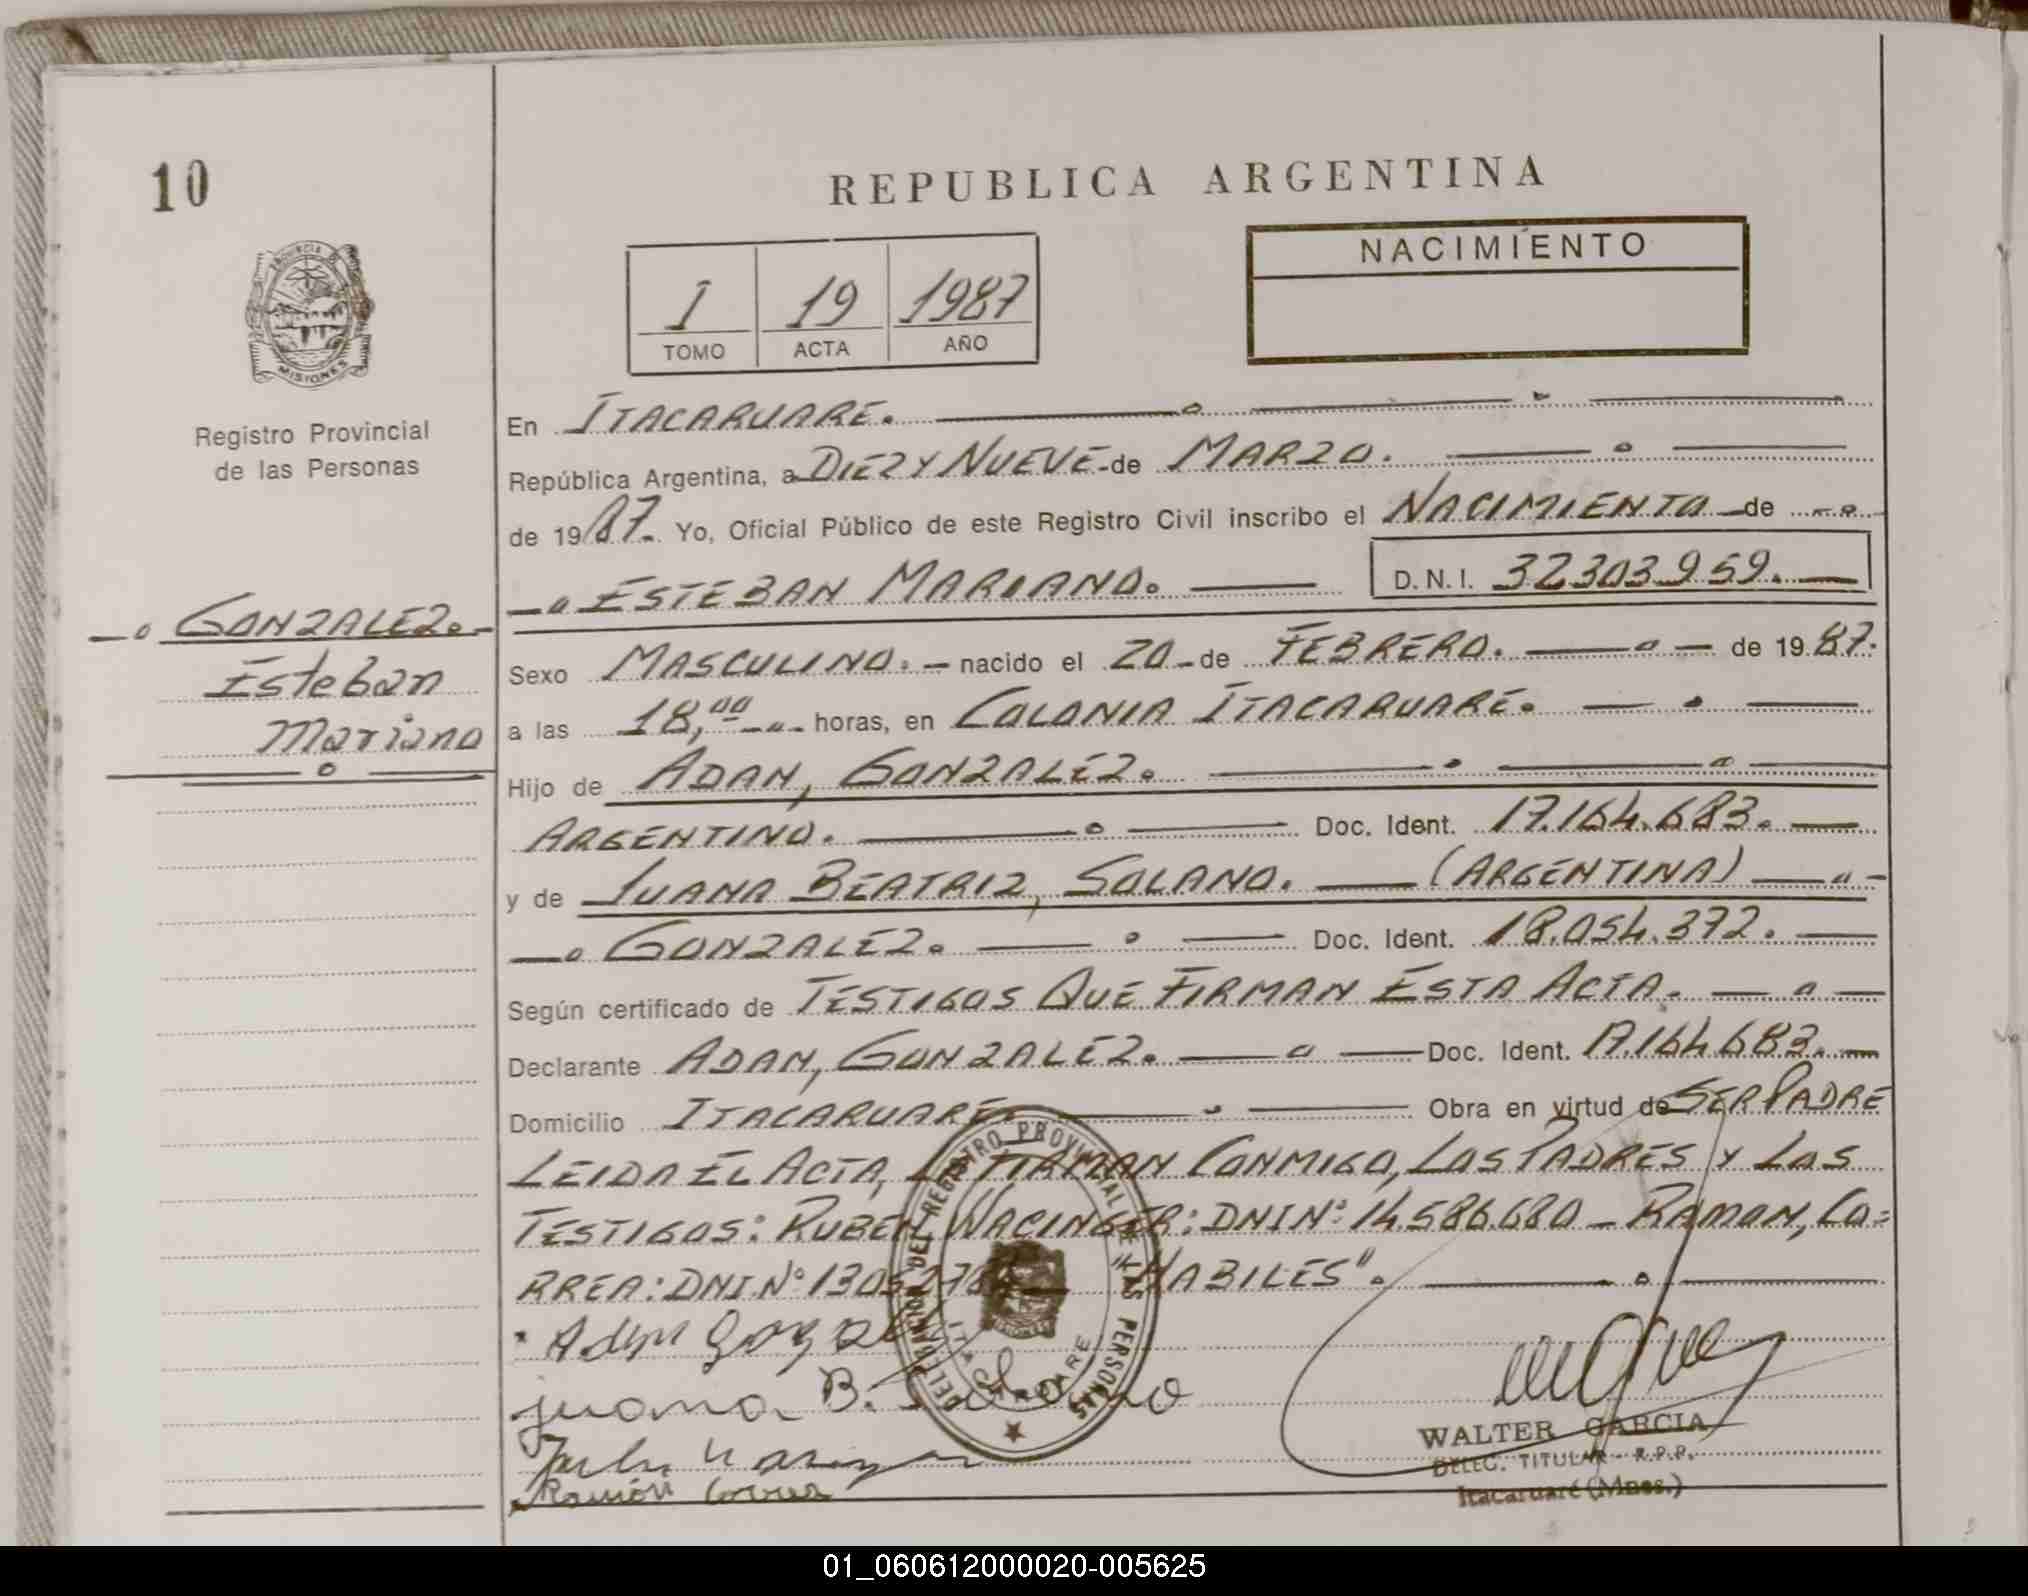 10
REPUBLICA ARGENTINA
NACIMIENTO
I 19 1987
TOMO ACTA AÑO
MISIONES
Registro Provincial
de las Personas
GONZALEZ.
Esteban
Mariano
En ITACARUARE.
República Argentina, a DIEZ Y NUEVE de MARZO.
de 1987. Yo, Oficial Público de este Registro Civil inscribo el NACIMIENTO de
ESTEBAN MARIANO. D.N.I. 32303959.
Sexo MASCULINO. nacido el 20 de FEBRERO. de 1987.
a las 18,00 horas, en COLONIA ITACARUARE.
Hijo de ADAN, GONZALEZ.
ARGENTINO. Doc. Ident. 17.164.683.
y de JUANA BEATRIZ, SOLANO. (ARGENTINA)
GONZALEZ. Doc. Ident. 18.054.372.
Según certificado de TESTIGOS QUE FIRMAN ESTA ACTA.
Declarante ADAN, GONZALEZ. Doc. Ident. 17.164.683.
Domicilio ITACARUARE. Obra en virtud de SER PADRE
LEIDA EL ACTA, FIRMAN CONMIGO, LOS PADRES Y LOS
TESTIGOS: RUBEN WACINGER: DNI Nº 14.586.680 - RAMON, CO=
RREA: DNI Nº "HABILES".
DEL REGISTRO PROVINCIAL DE LAS PERSONAS
ITACARUARE
Adan
juana B. Solano
Ramón Correa
WALTER GARCIA
DELEG. TITULAR - R.P.P.
Itacaruaré (Mnes.)
01_060612000020-005625